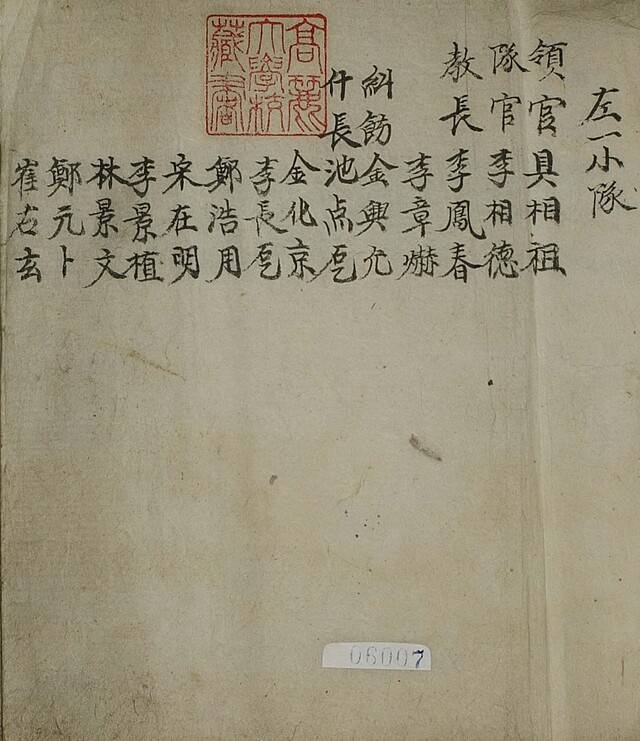 左一小隊
領官具相祖
隊官李相德
教長李鳳春
李章爀
糾飭金興允
什長池点乭
金化京
李長乭
鄭浩用
宋在明
李景植
林景文
鄭元卜
崔君玄
高麗大學校藏書
06007